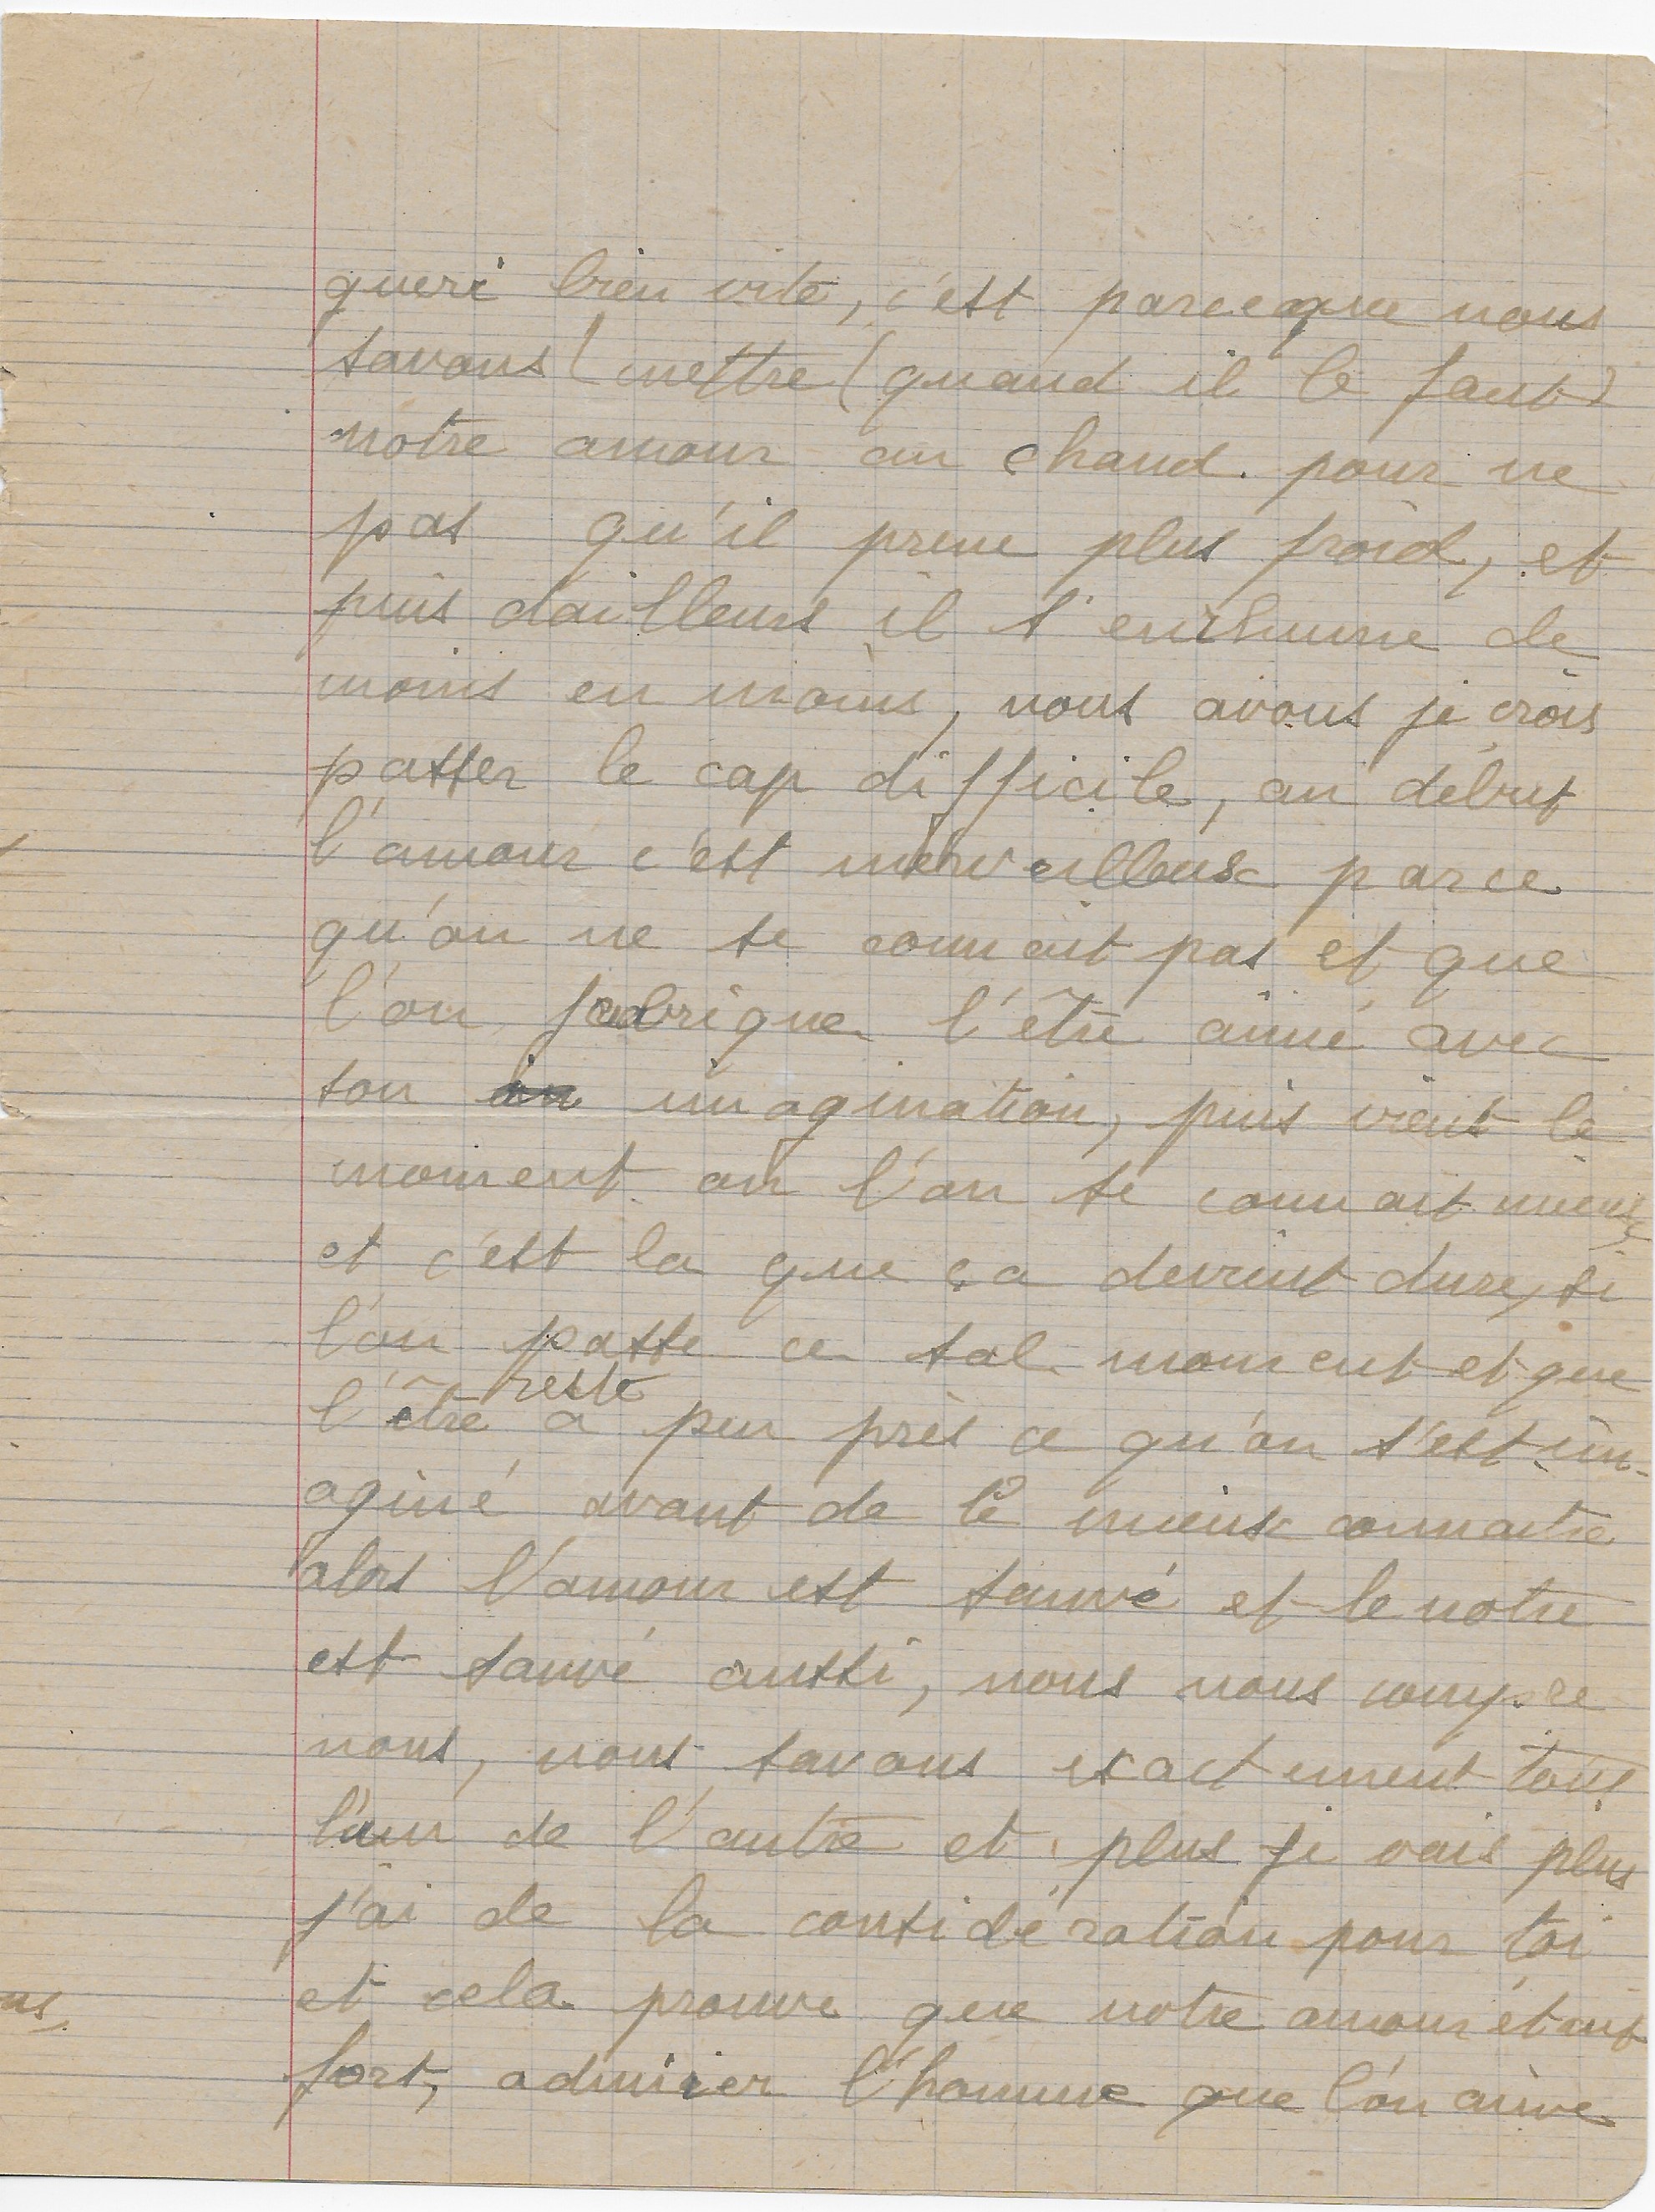 gueri bien vite, c'est parceque nous
savons (mettre (quand il le faut)
notre amour au chaud. pour ne
pas qu'il prene plus froid, et
puis dailleurs il s'enrhume de
moins en moins, nous avons je crois
passer le cap difficile, au début
l'amour c'est merveilleux parce
qu'on ne se connait pas et que
l'on fabrique l'être aimé avec
son imagination, puis vient le
moment ou l'on se connait mieux,
et c'est la que ça devient dure, si
l'on passe ce sal moment et que
l'être reste a peu près ce qu'on s'est im-
aginé avant de le mieux connaitre
alors l'amour est sauvé et le notre
est sauvé aussi, nous nous compre
nons, nous savons exactement tous
l'un de l'autre et plus je vais plus
j'ai de la considération pour toi
et cela prouve que notre amour étant
fort, admirer l'homme que l'on aime
ns,